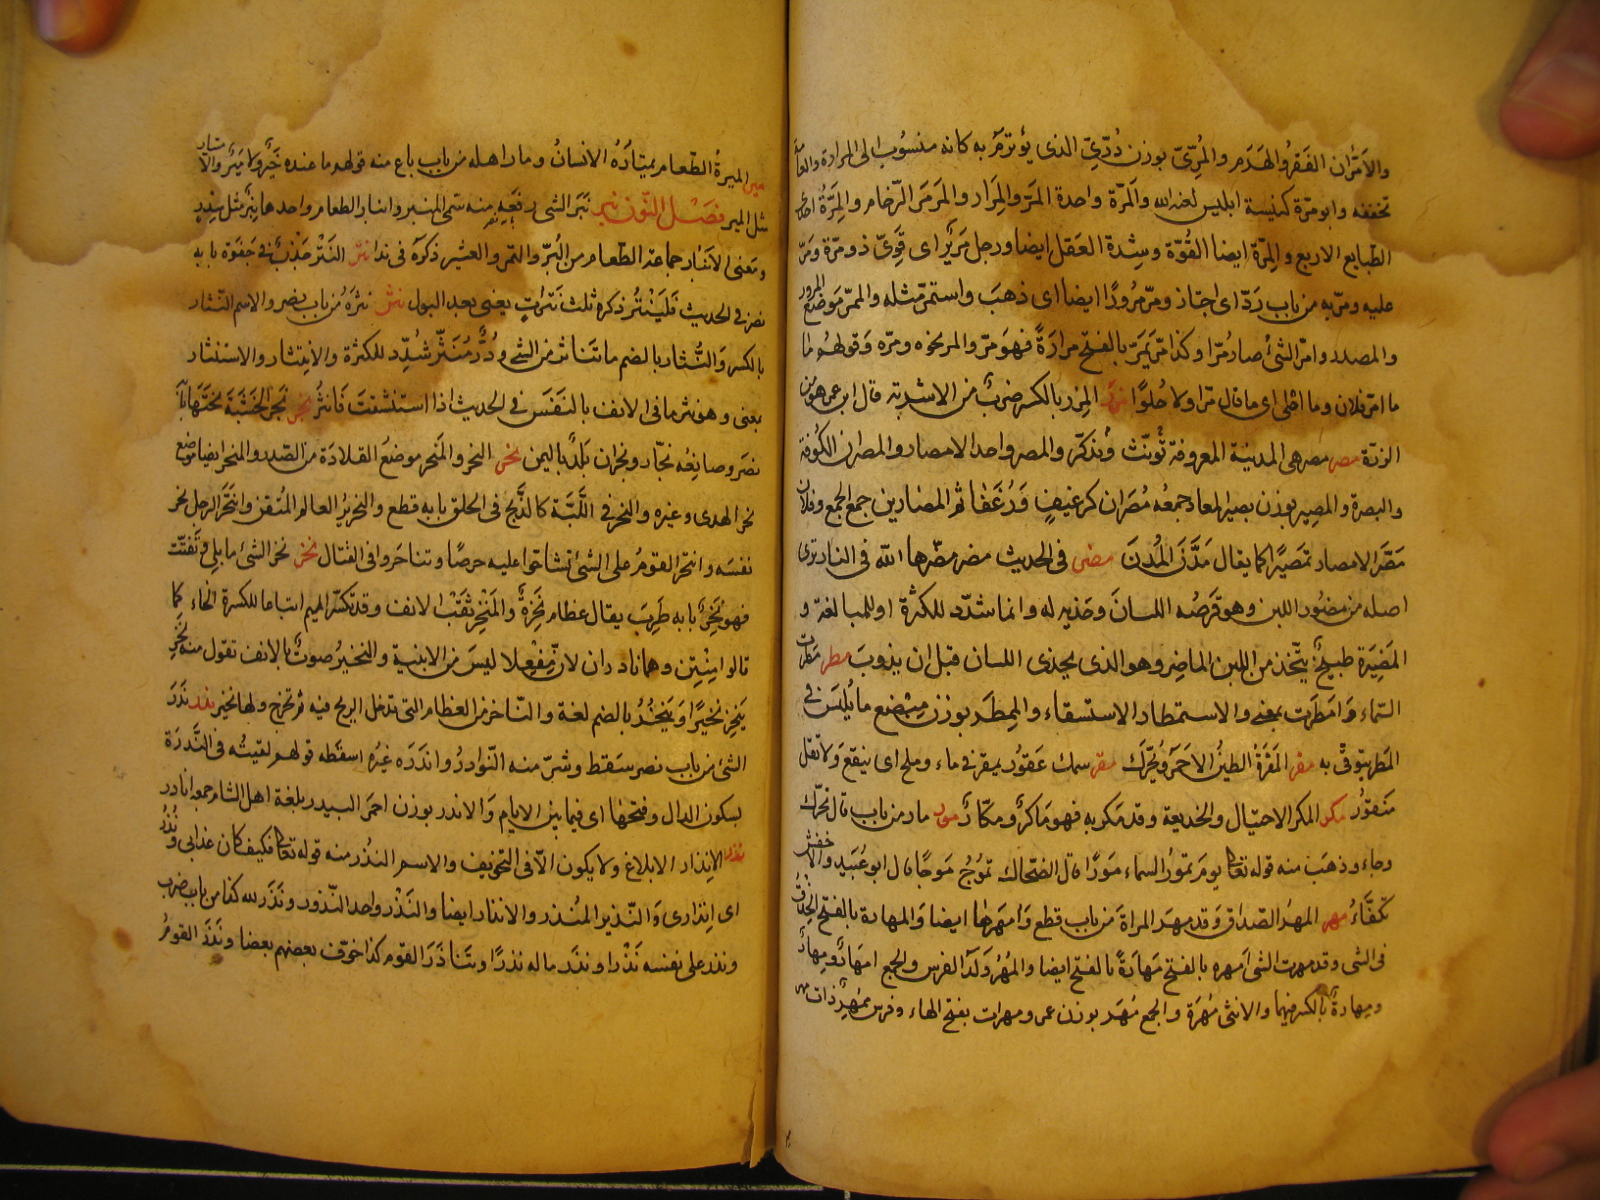 والأمَرّان الفقر والهَرَم والمُرّيّ بوزن دُرّيّ الذى يؤتدم به كانه منسوب الى المرارة والعامّة
تخففه وابو مرّة كنيسة ابليس لعنه الله والمرّة واحدة المَرّ والمِرَار والمرمَر الرّخام والمِرّةُ احدى
الطبايع الاربع والمِرّة ايضا القُوّة وشِدة العَقل ايضا ورجل مَرِيرٌ اى قَوِىّ ذو مِرّة ومَرّ
عليه ومرّ به من باب رَدّ اى اجتاز ومرّ مُرُورًا ايضا اى ذهبَ واستمرّ مثله والممرّ مَوضع المرور
والمصدر وامرّ الشئ صار مُرّا وكذا مرّ يَمَرّ بالفتح مرارَةً فهو مرّ وامر نحوه ومرّه وَقولهم ما
امرّ فلان وما احْلى اى ما قال مُرّا ولا حُلوًا مزر المِزر بالكسر ضربٌ من الاشربة قال ابن عمر هو من
الذرة مصر مصر هى المدينة المعروفة تُؤنّث وتُذكّر والمصر واحد الامصار والمصران الكوُفة
والبصرة والمصِير بوزن بصير المعا وجمعُه مُصْران كرغيفٍ وَرُغفان ثم المصارين جمع الجمع وفلان
مَصّرَ الامصار تمصيرًا كما يقال مَدّنَ المُدنَ مضر فى الحديث مضر مضّرها الله فى النار نرى
اصله من مضُور اللبن وهو قرصُه اللسانَ وحَذيه له وانما شدّد للكثرة او للمبالغة و
المَضِيرَة طبيخ يتّخذ من اللبن الماضِر وهو الذى يحذى اللسان قبل ان يذوبَ مطر مَطرَت
السّماء وَامَطرَت بمعنى والاستمطار الاستسقاء والمِمطَر بوزن مِبْضَع ما يُلبَس فى
المَطر يتوقّى به مغر المَغَرَةُ الطينُ الاحمَر ويُحرّكَ مقر سمك مَمقُور يمقر فى ماء وملح اى ينقع وَلا تقل
مَنقورٌ مكر المكر الاحتيال والخديعة وقد مكر به فهو مَاكرٌ ومكّارٌ مور مار من باب قال تحرّك
وجاء وذهبَ منه قوله تعالى يومَ تمورُ السماء مَورًا قال الضحّاك تموُجُ مَوجًا قال ابو عُبَيد والاخفش
تكفّاءُ مهر المهرُ الصّداق وَقد مهرَ المراة من باب قطع وَامهرَها ايضا وَالمهارة بالفتح الحِذقُ
فى الشى وقد مهرت الشئ امهره بالفتح مَهارَةً بالفتح ايضا والمُهْرُ وَلدُ الفرس والجمع امهَارٌ ومِهارٌ
ومِهارةٌ بالكسر فيهما والانثى مُهْرَة والجمع مُهَر بوزن عمر ومهرات بفتح الهاء وفرس مُمهِرٌ ذات مهر
مير الميرةُ الطّعام يمتارُهُ الانسانُ ومار اهله من باب باع منه قولهم ما عنده خَيْرٌ ولا مَيْرٌ والامتيار
مثل المير فصل النّون نبر نَبَرَ الشى رفَعَه منه سُمّى المِنبر وانبار الطعام واحدها نِبْرٌ مثل سِدْرٍ
وَمَعنى الأنبار جماعة الطعام من البُرّ والتمر والشعير ذكرَه فى ندا نتر النَتْر جَذْبٌ فى جَفوَة بابه
نصر فى الحديث فَليَنْتُرْ ذكره ثلث نَتَراتٍ يعنى بعد البول نثر نثرَهُ من باب نصر والاسم النثار
بالكسر وَالنُّثار بالضم ما تَناثر من الشئ ودُرٌّ مُنثّرٌ شُدِّد للكثرة والانتثار والاستنثار
بمعنى وهو نثر ما فى الانف بالنَفَس فى الحديث اذا استنشقتَ فَانثُرْ نجر نَجَر الخشبَةَ نَحَتَها بابه
نصَرَ وصانِعُه نجّار ونَجران بَلدٌ باليمن نحر النحر والمَنحَر موضعَ القلادَة من الصّدر والمنحر ايضا موضع
نحر الهدى وغيره والنحر فى اللّبّة كالذّبح فى الحلق بابه قطع والنحرِيرُ العالم المُتقن وانتَحَرَ الرجل نحر
نفسَه وانتحَر القومُ على الشئ تشاحّوا عليه حرصًا وتناحَروا فى القتال نخر نخر الشئ ما بلِىَ وتَفتّتَ
فهو نَخِرٌ بابه طَرِبَ يقال عظام نَخِرَةٌ والمَنْخِر ثَقْبُ الانف وقد تكسَر الميم اتباعا للكسرة الخاء كما
قالوا مِنْتِن وهما نادران لان مِفْعِلا ليسَ من الابنية والنخيرُ صوتٌ بالانف تقول منه نَخَر
يَنخِر نخيرًا وَيَنخُرُ بالضم لغة والنّاخر من العظام التى تدخل الريح فيه ثم تخرج ولها نخير ندر نَدَرَ
الشئ من باب نصر سَقط وشذّ منه النّوادرُ واندَرَه غيرُه اسقطَه قولهم لقيتُه فى النّدرَة
بسكون الدال وفتحها اى فيما بين الايام وَالاندر بوزن احمَر البَيدر بلغة اهل الشام جمعه انادر
نذر الانذار الابلاغ ولا يكون الّا فى التخويف والاسم النُذُر منه قوله تعالى فكيف كان عذابى ونُذُر
اى انذارى وَالنّذير المُنذر والانذار ايضا والنّذْر واحد النّذور ونَذَر لله كذا من باب ضرب
ونذر على نفسه نَذْرا ونذَر ماله نذرًا وتَناذَرَ القوم كذا خوّف بعضهم بعضا ونَذِرَ القومُ